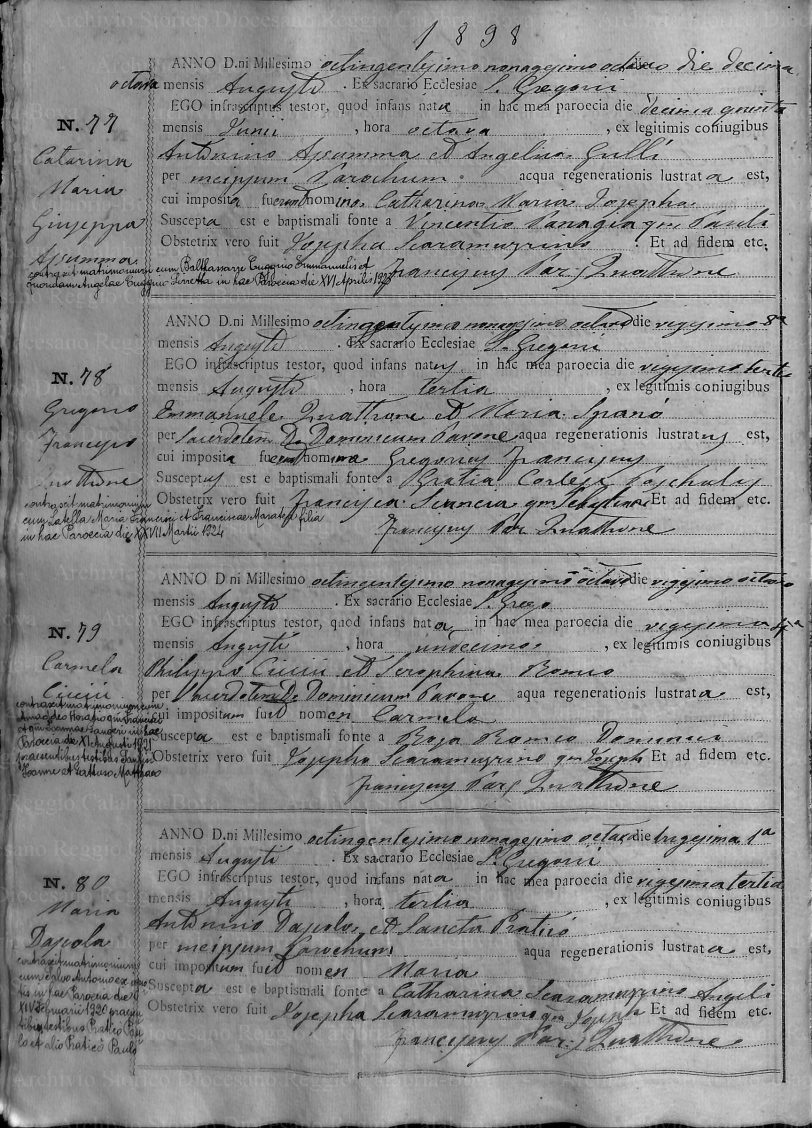 1898
ANNO D.ni Millesimo octingentesimo nonagesimo octavo die decima
octava mensis Augusti . Ex sacrario Ecclesiae S. Gregorii
EGO infrascriptus testor, quod infans nata in hac mea paroecia die decima quinta
mensis Junii , hora octava , ex legitimis coniugibus
N. 77
Antonino Assumma et Angelina Gulli
Catarina
Maria
Giuseppa
Assumma
per meipsum Parochum acqua regenerationis lustrata est,
cui imposita fuerunt nomina Catharina Maria Josepha
Suscepta est e baptismali fonte a Vincentio Panagia qm Pauli
Obstetrix vero fuit Josepha Scaramuzzino . Et ad fidem etc.
Franciscus Par. Quattrone
contraxit matrimonium cum Balthassare Eugenio Emmanuelis et
quondam Angelae in hac Paroecia die XVI Aprilis 1923
ANNO D.ni Millesimo octingentesimo nonagesimo octavo die vigesimo 8a
mensis Augusti . Ex sacrario Ecclesiae S. Gregorii
EGO infrascriptus testor, quod infans natus in hac mea paroecia die vigesimo tertio
mensis Augusti , hora tertia , ex legitimis coniugibus
N. 78
Gregorio
Francesco
Quattrone
Emmanuele Quattrone et Maria Spanò
per Sacerdotem D. Dominicum Pavone aqua regenerationis lustratus est,
cui imposita fuerunt nomina Gregorius Franciscus
Susceptus est e baptismali fonte a Gratia Cortese Paschalis
Obstetrix vero fuit Francisca Sciancia qm Et ad fidem etc.
Franciscus Par. Quattrone
contraxit matrimonium
cum Latella Maria Francisci et Franciscae Marateа filia
in hac Paroecia die XXVII Martii 1924
ANNO D.ni Millesimo octingentesimo nonagesimo octavo die vigesimo octavo
mensis Augusti . Ex sacrario Ecclesiae S. Grego
EGO infrascriptus testor, quod infans nata in hac mea paroecia die vigesima
mensis Augusti , hora undecima , ex legitimis coniugibus
N. 79
Carmela
Ciccii
Philippo Ciccii et Seraphina Romeo
per Sacerdotem D. Dominicum Pavone aqua regenerationis lustrata est,
cui impositum fuit nomen Carmela
Suscepta est e baptismali fonte a Rosa Romeo Dominici
Obstetrix vero fuit Josepha Scaramuzzino qm Joseph Et ad fidem etc.
Franciscus Par. Quattrone
contraxit matrimonium cum
Amaddeo Horatio qm
et qm Joannae in hac
Paroecia die XI Augusti 1921
praesentibus testibus
Joanne et Mattheo
ANNO D.ni Millesimo octingentesimo nonagesimo octavo die trigesima 1a
mensis Augusti . Ex sacrario Ecclesiae S. Gregorii
EGO infrascriptus testor, quod infans nata in hac mea paroecia die vigesima tertia
mensis Augusti , hora tertia , ex legitimis coniugibus
N. 80
Maria
Dascola
Antonino Dascola et Sancta Praticò
per meipsum Parochum aqua regenerationis lustrata est,
cui impositum fuit nomen Maria
Suscepta est e baptismali fonte a Catharina Scaramuzzino Angeli
Obstetrix vero fuit Josepha Scaramuzzino qm Joseph Et ad fidem etc.
Franciscus Par. Quattrone
contraxit matrimonium
cum Antonio ex
in hac Paroecia die
XIV Februarii 1920 praesen
tibus testibus Praticò
et alio Praticò Paulo